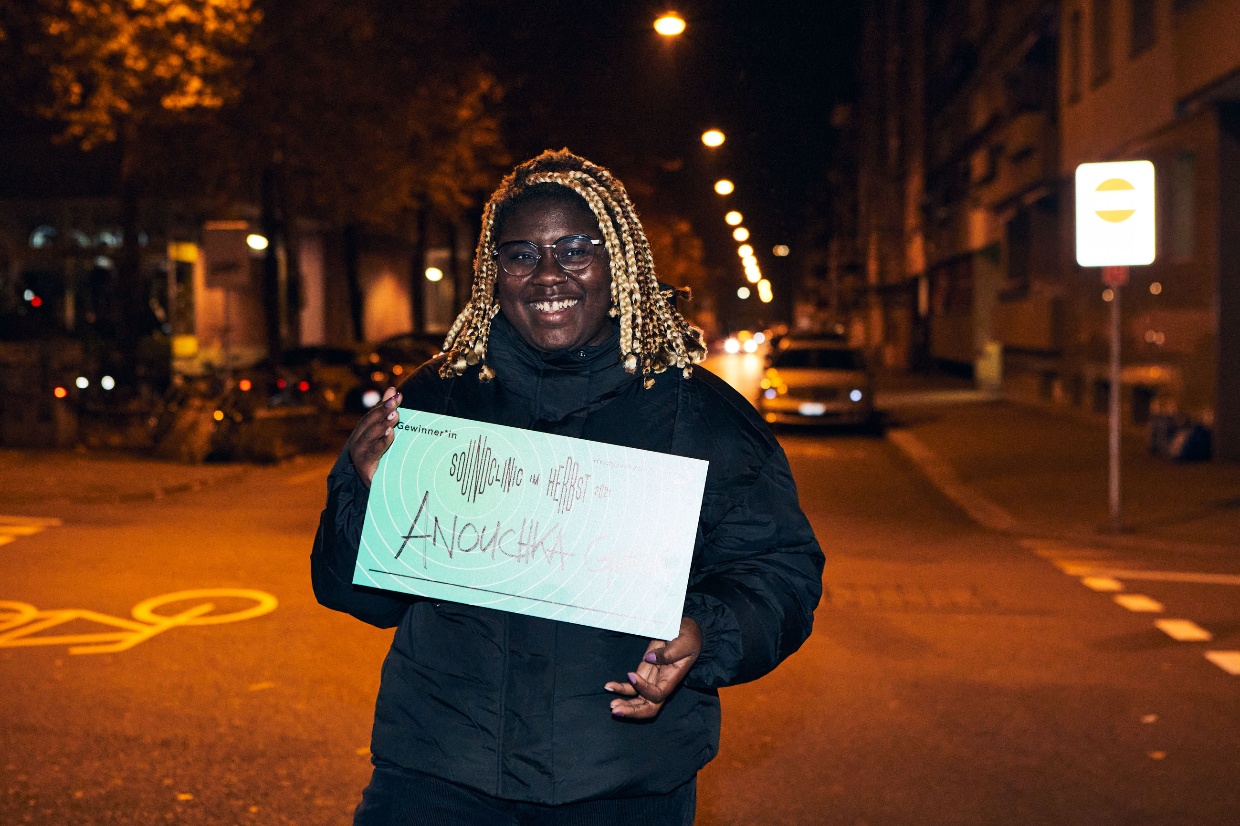 Gewinner*in
SOUNDCLINIC IM HERBST 2021
ANOUCHKA